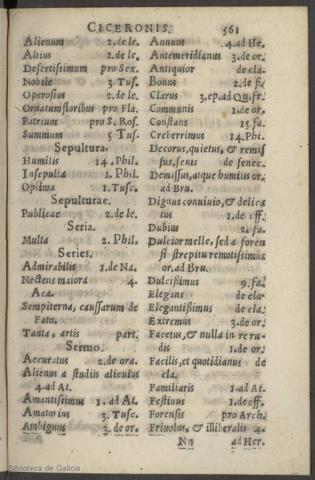 CICERONIS. 561
Alienum 2. de le.
Altius 2. de le.
Desertissimum pro Sex.
Nobile 3. Tus.
Operosius 2. de le.
Ornatum floribus pro Fla.
Patrium pro S. Ros.
Summum 5 Tus.
Sepultura.
Humilis 14. Phil.
Insepulta 1. Phil.
Optima 1. Tusc.
Sepulturae.
Publicae 2. de le.
Seria.
Multa 2. Phil.
Series.
Admirabilis 1. de Na.
Nectens maiora 4.
Aca.
Sempiterna, caussarum de
Fato.
Tanta, artis part.
Sermo.
Accuratus 2. de ora.
Alienus a studiis alicuius
4. ad At.
Amantissimus 1. ad At.
Amatorius 3. Tusc.
Ambiguus 3. de or.
Annuus 4. ad He.
Antemeridianus 3. de or.
Antiquior de cla.
Bonus 2. de fi.
Clarus 3. ep. ad Qu. fr.
Communis 1. de or.
Constans 15. fa.
Creberrimus 14. Phi.
Decorus, quietus, & remis
sus, senis de senec.
Demissus, atque humilis or.
ad Bru.
Dignus conuiuio, & delica
tus 1. de off.
Dubius 2. fa.
Dulcior melle, sed a foren
si strepitu remotissimus
or. ad Bru.
Dulcissimus 9. fa.
Elegans de cla.
Elegantissimus de cla.
Extremus 3. de or.
Facetus, & nulla in re ru-
dis 1. de or.
Facilis, et quotidianus de
cla.
Familiaris 1. ad At.
Festiuus 1. de off.
Forensis pro Arch.
Friuolus, & illiberalis 4.
Nn ad Her.
Biblioteca de Galicia